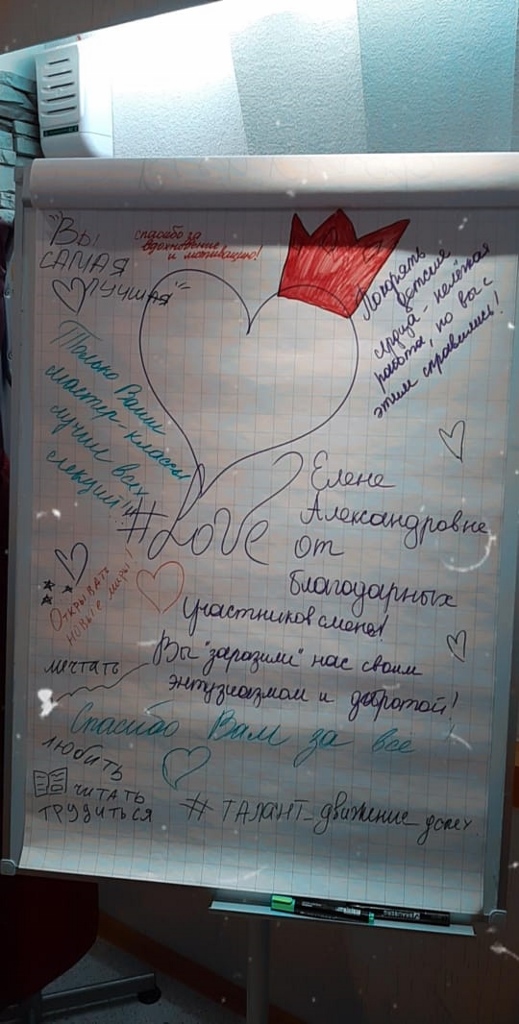 "Вы
САМАЯ
ЛУЧШАЯ"
спасибо за
вдохновение
и мотивацию!
Покорять
детские
сердца - нелёгкая
работа, но вы с
этим справились!
Только Ваши
мастер-классы
лучше всех
лекций!!!
#LOVE
Елене
Александровне
от
благодарных
участников смены!
Открывать
новые миры!
Вы "заразили" нас своим
энтузиазмом и добротой!
мечтать
Спасибо Вам за всё
любить
читать
трудиться
# ТАЛАНТ_движение_успех